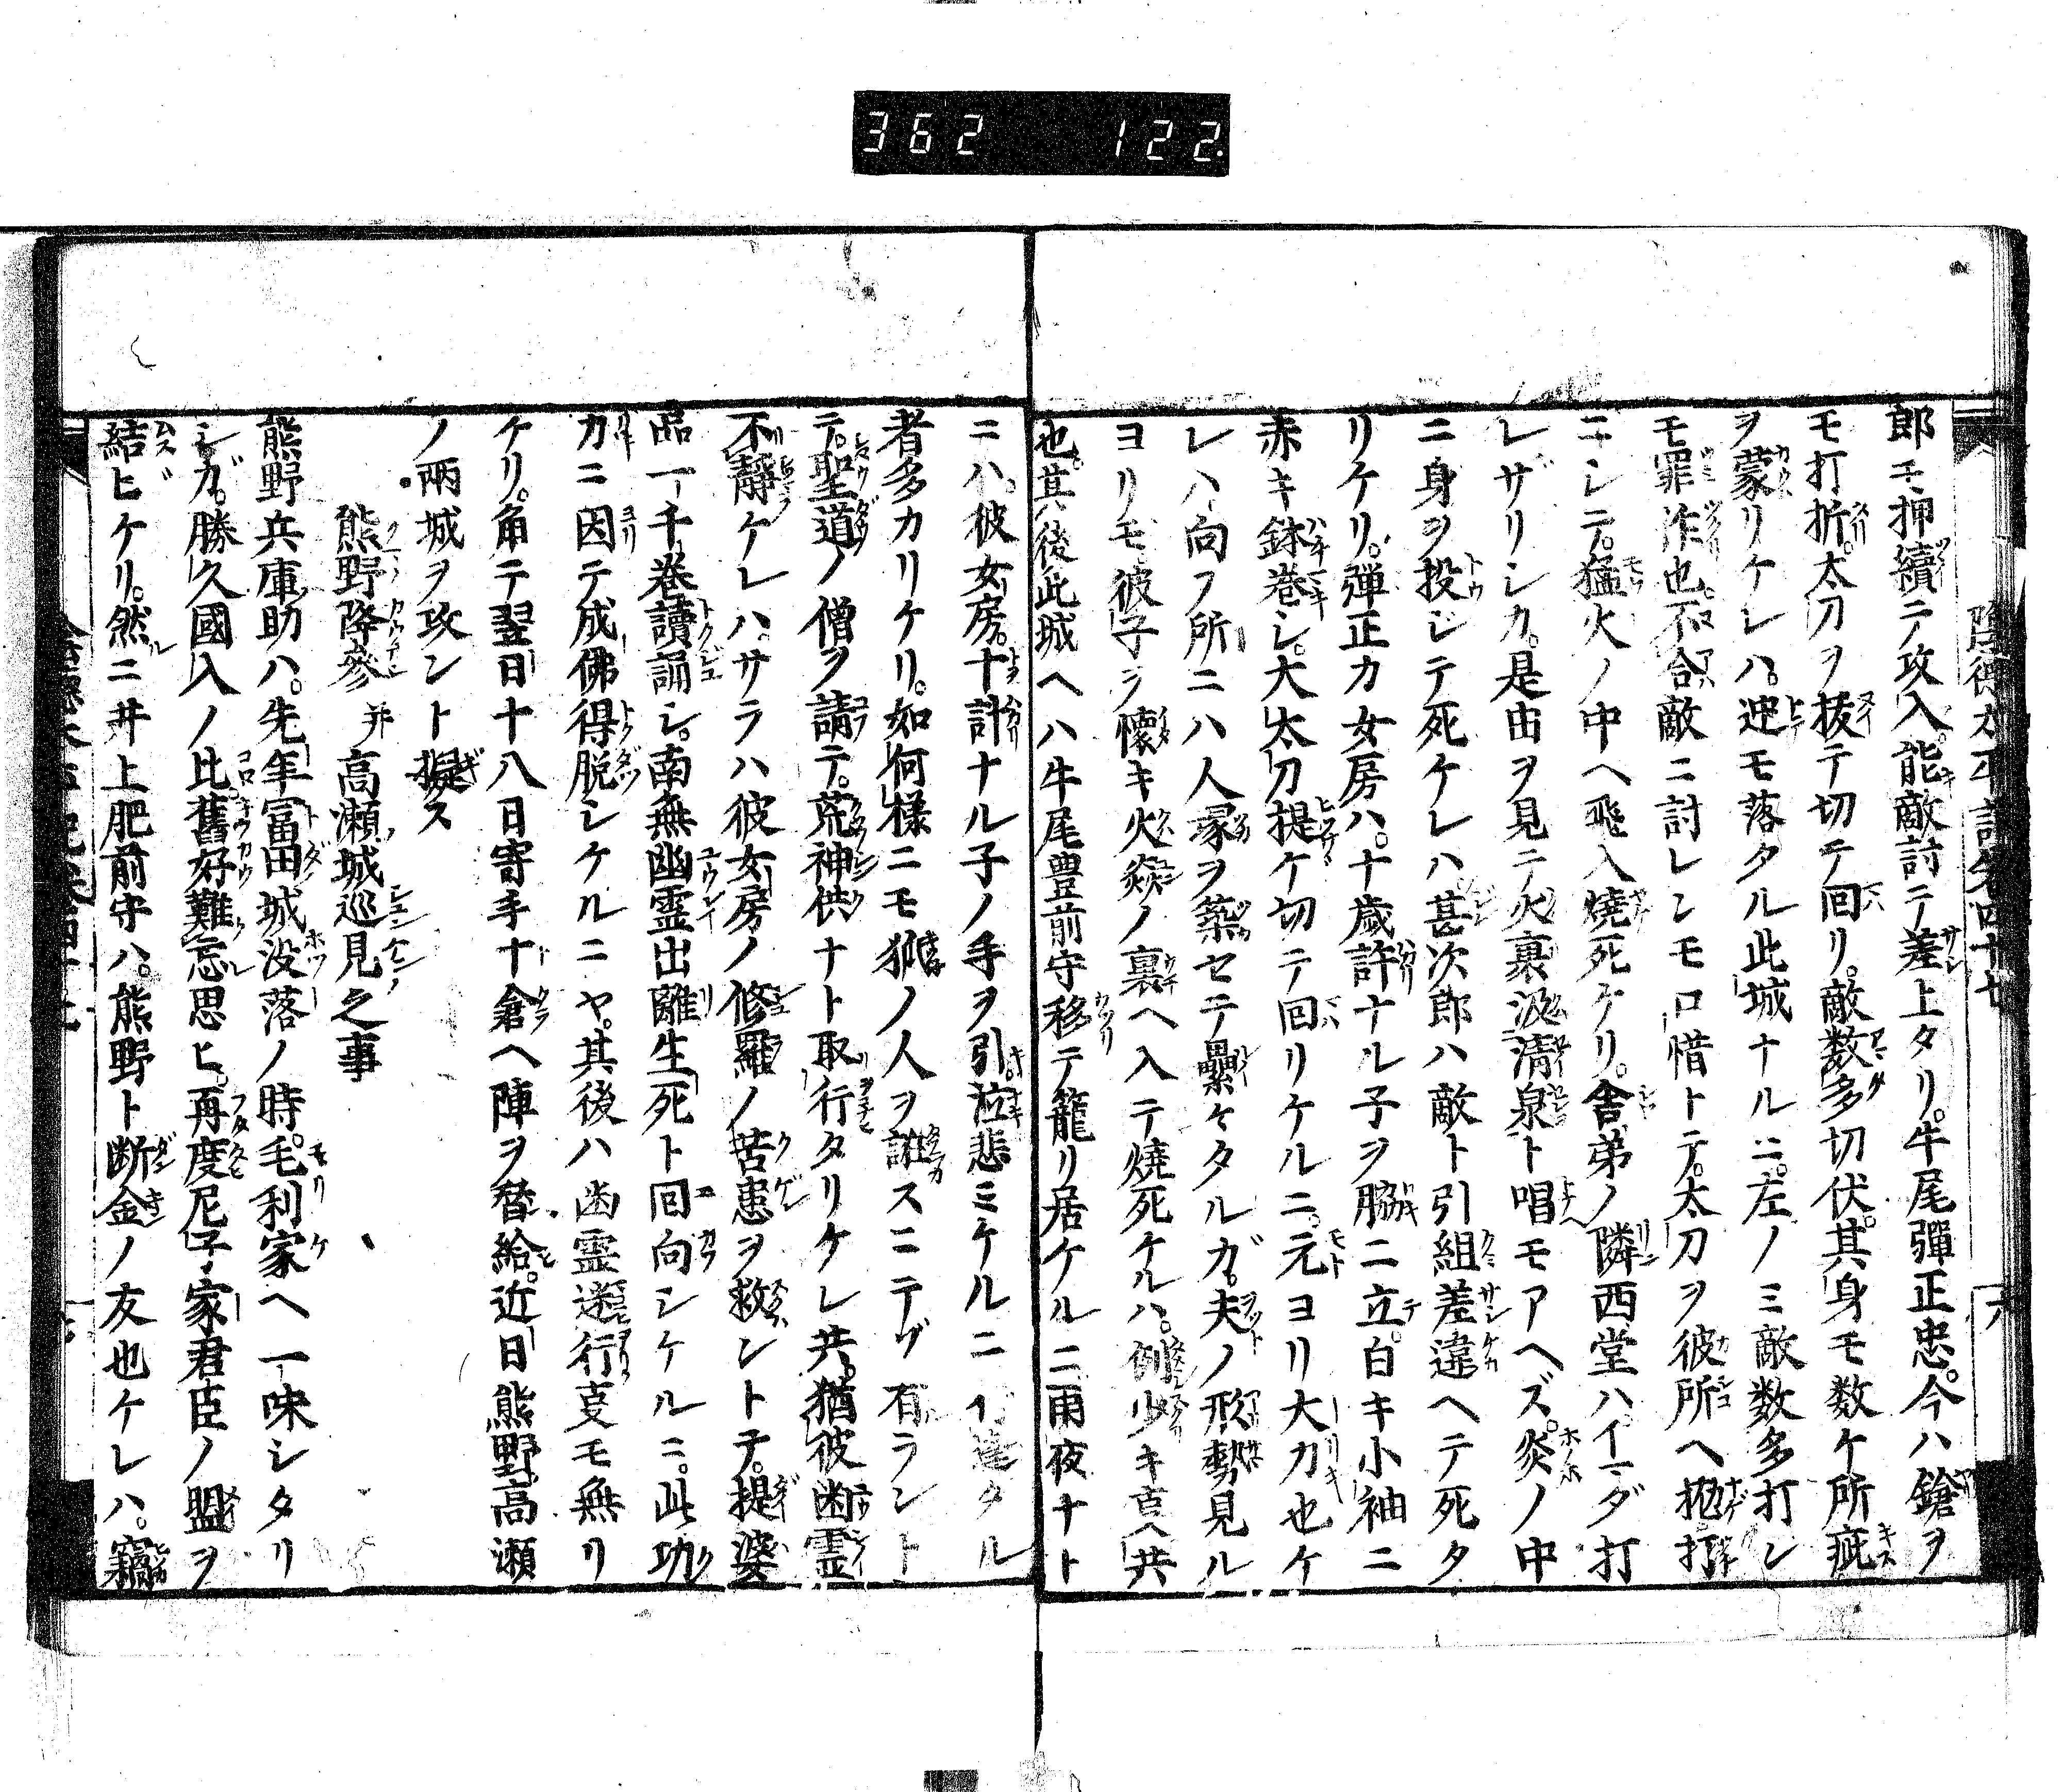 362 122.
陰徳太平記巻四十七 六
郎モ押續テ攻入。能敵討テ差上タリ。牛尾彈正忠。今ハ鎗ヲ
モ打折。太刀ヲ抜テ切テ回リ。敵数多切伏。其身モ数ケ所疵
ヲ蒙リケレハ。迚モ落タル此城ナルニ。左ノミ敵数多打ン
モ罪作也。不合敵ニ討レンモ口惜トテ。太刀ヲ彼所ヘ抛打
ニシテ。猛火ノ中ヘ飛入燒死ケリ。舎弟ノ隣西堂ハ。イマダ打
レザリシカ。是由ヲ見テ火裏汲清泉ト唱モアヘズ。炎ノ中
ニ身ヲ投ジテ死ケレハ甚次郎ハ敵ト引組差違ヘテ死タ
リケリ。彈正カ女房ハ。十歳許ナル子ヲ脇ニ立。白キ小袖ニ
赤キ鉢巻シ。大太刀提ケ切テ回リケルニ。元ヨリ大力也ケ
レハ向フ所ニハ人塚ヲ築セテ纍々タルガ。夫ノ形勢見ル
ヨリモ。彼子ヲ懷キ火焱ノ裏ヘ入テ燒死ケルハ。例少キ叓共
也。其後此城ヘハ牛尾豊前守移テ籠リ居ケル二雨夜ナト
ニハ。彼女房。十計ナル子ノ手ヲ引泣悲ミケルニ行逢タル
者多カリケリ。如何様ニモ狐ノ人ヲ誑スニテゾ有ラント
テ。聖道ノ僧ヲ請テ。荒神供ナト取行タリケレ共。猶彼幽霊
不靜ケレハ。サラハ彼女房ノ修羅ノ苦患ヲ救ントテ。提婆
品一千巻讀誦シ。南無幽霊出離生死ト回向シケルニ。此功
カニ因テ成佛得脱シケルニヤ。其後ハ幽霊迷行叓モ無リ
ケリ。角テ翌日十八日寄手十倉ヘ陣ヲ替給。近日熊野高瀬
ノ兩城ヲ攻ント擬ス
熊野降參并高瀬城巡見之事
熊野兵庫助ハ。先年冨田城没落ノ時。毛利家ヘ一味シタリ
シガ。勝久國入ノ比。舊好難忘思ヒ。再度尼子家君臣ノ盟ヲ
結ヒケリ。然ニ井上肥前守ハ。熊野ト断金ノ友也ケレハ。竊